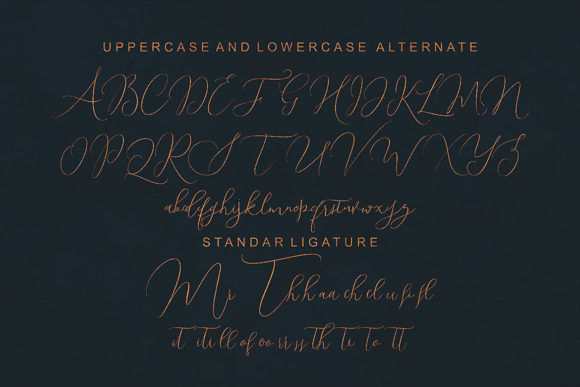 UPPERCASE AND LOWERCASE ALTERNATE
A B C D E F G H I J K L M N
O P Q R S T U V W X Y Z
a b c d e f g h i j k l m n o p q r s t u v w x y z
STANDAR LIGATURE
Mr Th h aa ch cl u fi fl
it ti ll of oo rr ss th ti to tt